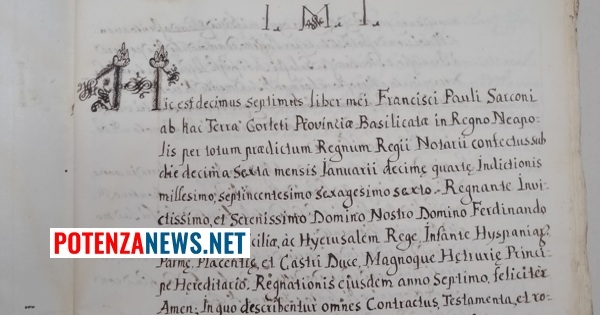 I. M. I.
Hic est decimus septimus liber mei Francisci Pauli Sarconi
ab hac Terra Corleti Provinciæ Basilicatæ in Regno Neapo-
lis per totum prædictum Regnum Regii Notarii confectus sub
die decima sexta mensis Januarii decimę quartę Indictionis
millesimo, septincentesimo sexagesimo sexto. Regnante Invi-
ctissimo, et Serenissimo Domino Nostro Domino Ferdinando
POTENZANEWS.NET
ciliæ, ac Hyerusalem Rege, Infante Hyspaniaꝝ
Parmę, Placentię, et Castri Duce, Magnoque Hetrurię Princi-
pe Hereditario. Regnationis ejusdem anno Septimo, feliciter
Amen; In quo describentur omnes Contractus, Testamenta, et ro-